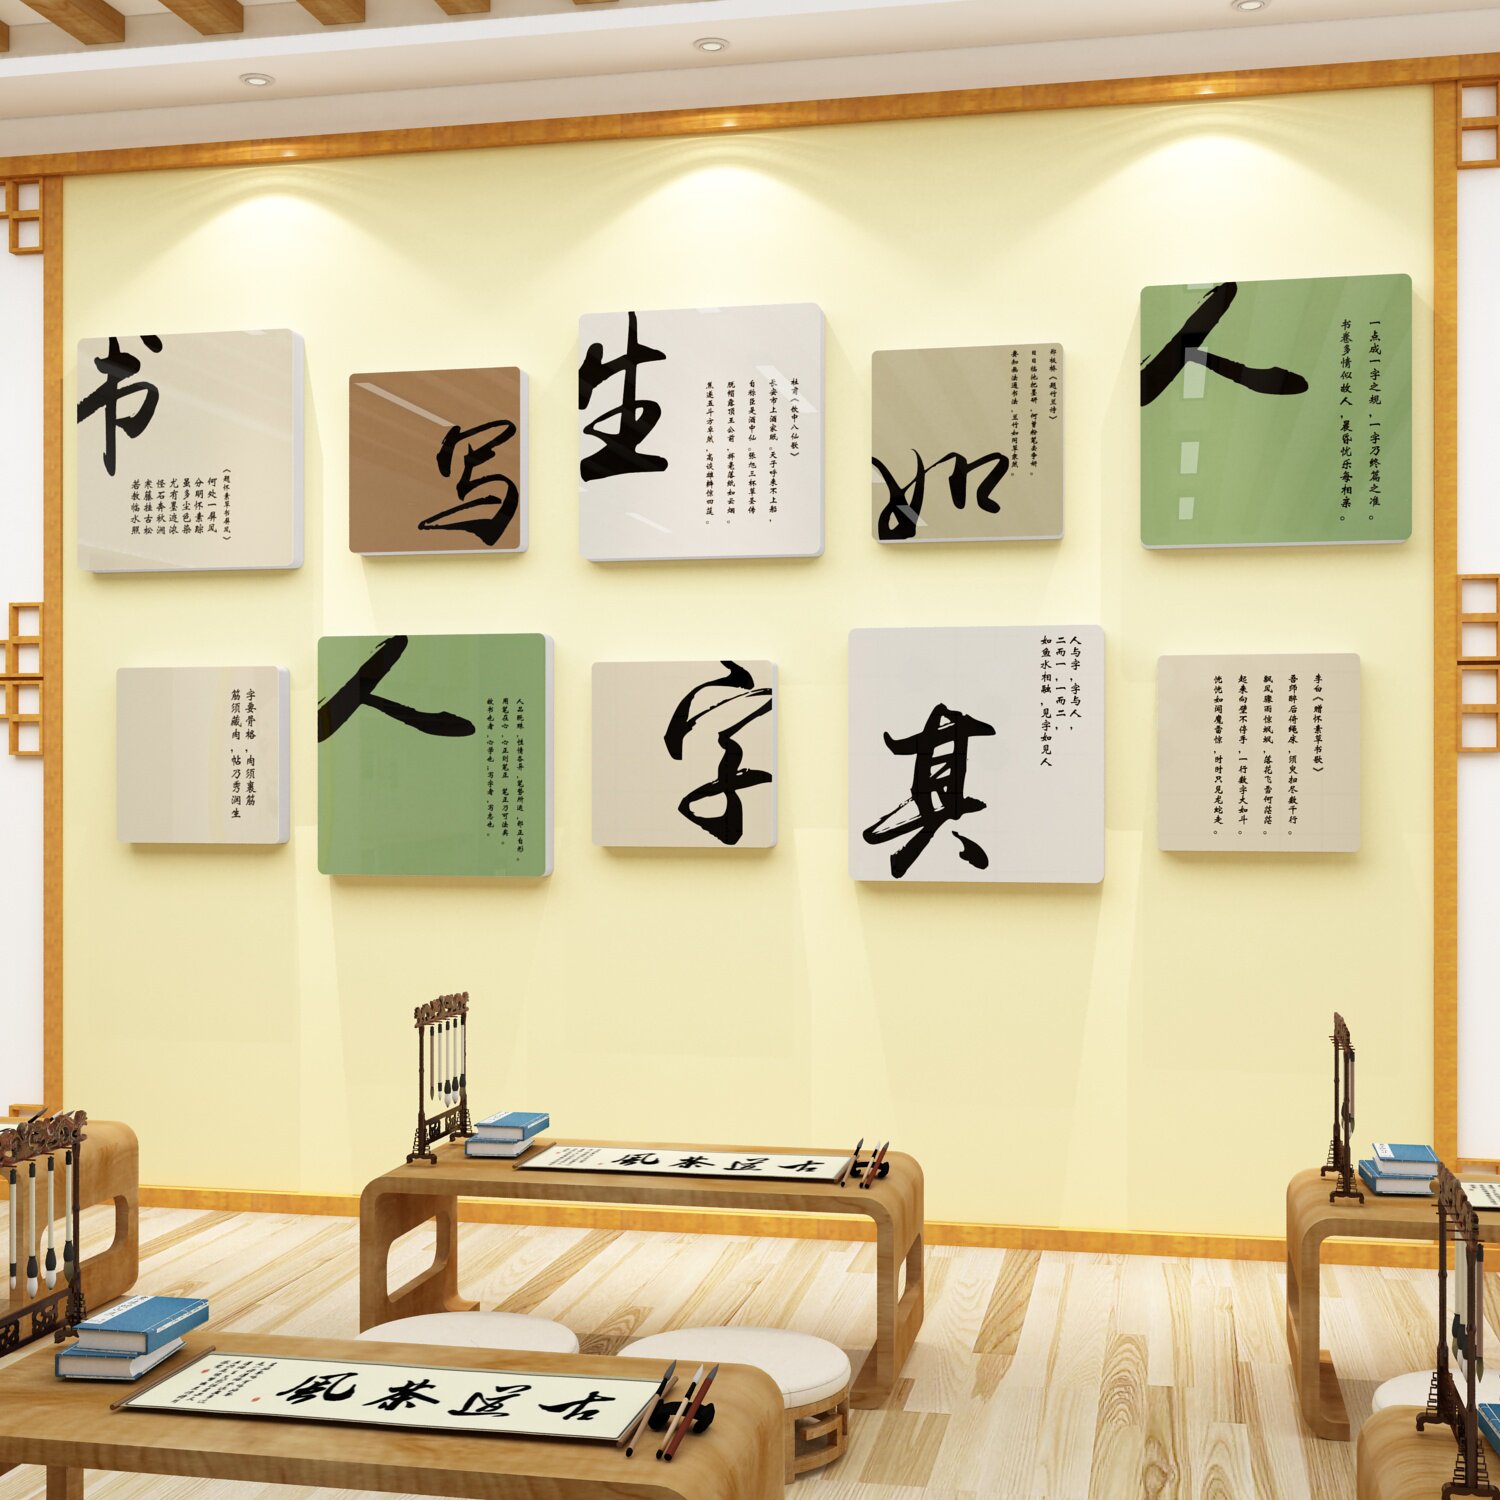 书
《题怀素草书屏风》
何处一屏风
分明怀素踪
虽多尘色染
尤有墨迹浓
怪石奔秋涧
寒藤挂古松
若教临水照
写
生
杜甫《饮中八仙歌》
长安市上酒家眠。天子呼来不上船，
自称臣是酒中仙。张旭三杯草圣传
脱帽露顶王公前，挥毫落纸如云烟。
焦遂五斗方卓然，高谈雄辩惊四筵。
如
郑板桥《题竹兰诗》
日日临池把墨研，何曾粉笔去争妍。
要知画法通书法，兰竹如同草隶然。
人
一点成一字之规，一字乃终篇之准。
书卷多情似故人，晨昏忧乐每相亲。
字要骨格，肉须裹筋
筋须藏肉，帖乃秀润生
人
人品既殊，性情各异，笔势所运，邪正自形。
用笔在心，心正则笔正，笔正乃可法矣。
故书也者，心学也；写字者，写志也。
字
其
人与字，字与人，
二而一，一而二，
如鱼水相融，见字如见人
李白《赠怀素草书歌》
吾师醉后倚绳床，须臾扫尽数千行。
飘风骤雨惊飒飒，落花飞雪何茫茫。
起来向壁不停手，一行数字大如斗。
恍恍如闻魔雷惊，时时只见龙蛇走。
古道茶風
古道茶風